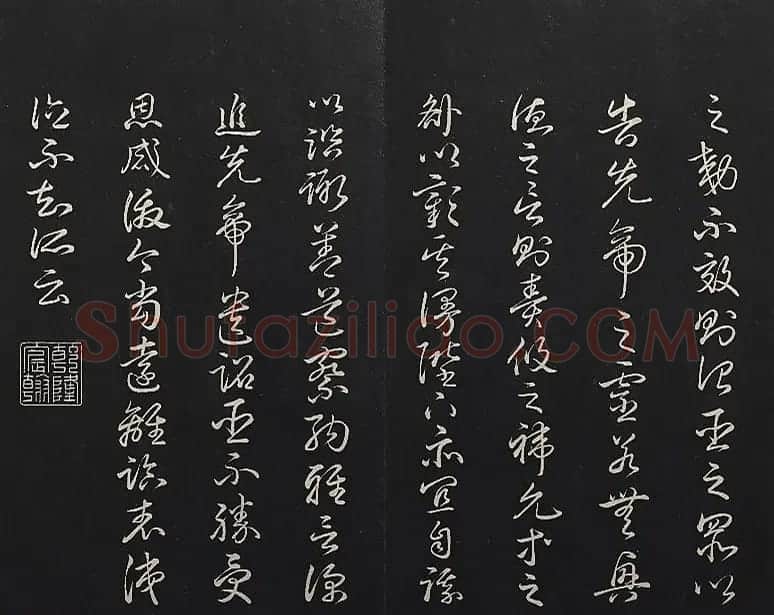 之効不效則治臣之罪以
告先帝之靈若無興
德之言則責攸之禕允等之
咎以彰其慢陛下亦宜自謀
以諮諏善道察納雅言深
追先帝遺詔臣不勝受
恩感激今當遠離臨表涕
泣不知所云
乾隆
宸翰
Shufaziliao.COM